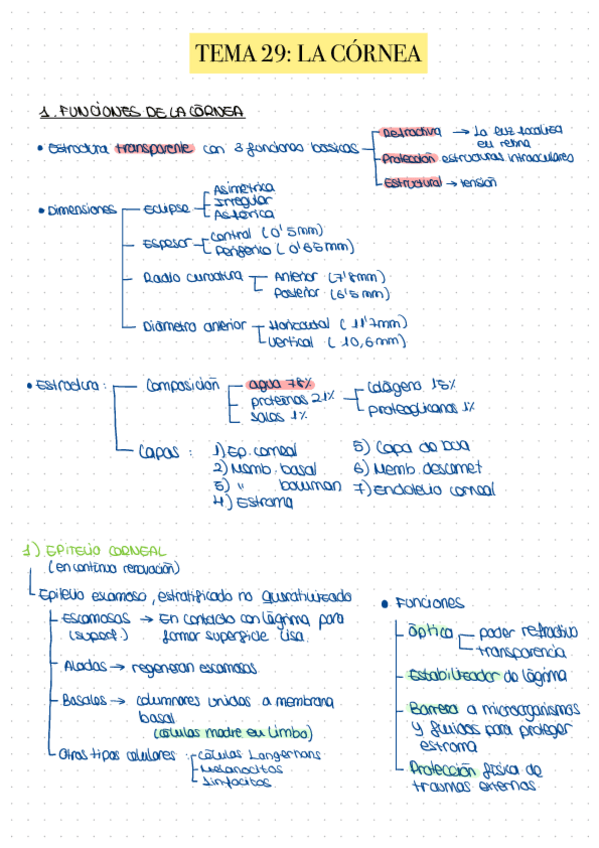 TEMA 29: LA CÓRNEA
1. FUNCIONES DE LA CÓRNEA
• Estructura transparente con 3 funciones basicas
Refractiva → La luz localiza
en retina
Protección estructuras intraoculares
Estructural → tensión
• Dimensiones
Eclipse
Asimetrica
Irregular
Asférica
Espesor
Central (0'5mm)
Periferico (0'65mm)
Radio curvatura
Anterior (7'8mm)
Posterior (6'5mm)
Diámetro anterior
Horizontal (11'7mm)
Vertical (10,6mm)
• Estructura:
Composición
agua 78%
proteinas 21%
Colágeno 15%
proteoglicanos 1%
Sales 1%
Capas:
1) Ep. corneal
2) Memb. basal
3) " bowman
4) Estroma
5) Capa de dua
6) Memb. descemet
7) Endotelio corneal
1) EPITELIO CORNEAL
(en continua renovación)
Epitelio escamoso, estratificado no queratinizado
Escamosas → En contacto con lágrima para
(superf.) formar superficie lisa
Aladas → regeneran escamosas
Basales → columnares unidas a membrana
basal
(células madre en limbo)
Otros tipos celulares
Células Langerhans
Melanocitos
Linfocitos
• Funciones
Óptica
poder refractivo
transparencia
Estabilizador de lágrima
Barrera a microorganismos
y fluidos para proteger
estroma
Protección física de
traumas externos